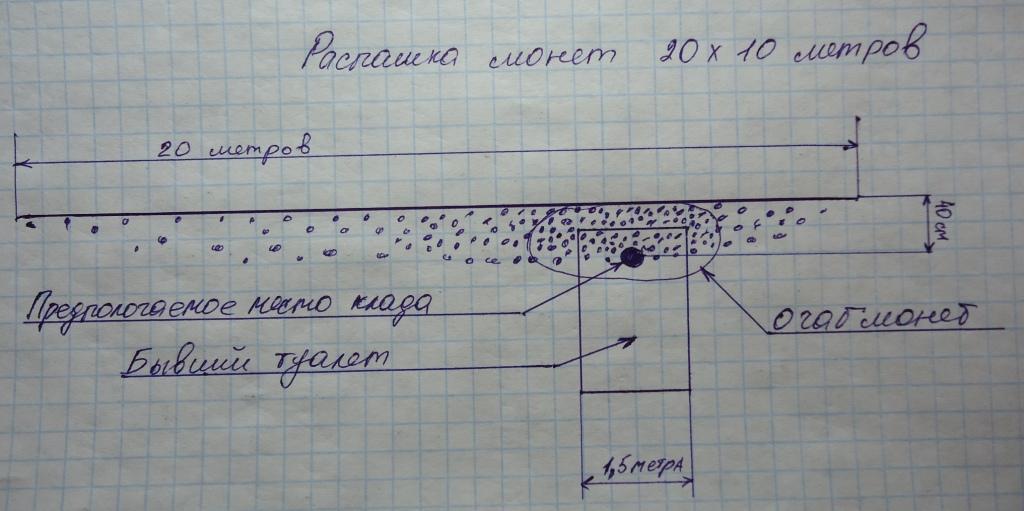 Распашка монет 20 х 10 метров
20 метров
40 см
Предпологаемое место клада
Бывший туалет
Очаг монет
1,5 метра